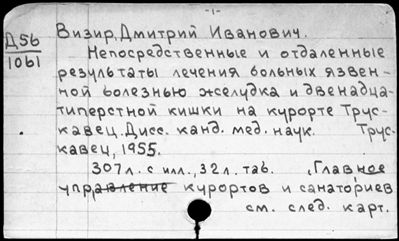 -1-
Д56
1061
Визир, Дмитрий Иванович.
Непосредственные и отдаленные
результаты лечения больных язвен-
ной болезнью желудка и двенадца-
типерстной кишки на курорте Трус-
кавец. Дисс. канд. мед. наук. Трус-
кавец, 1955.
307л. с илл., 32л. таб. „Главное
управление курортов и санаториев
см. след. карт.